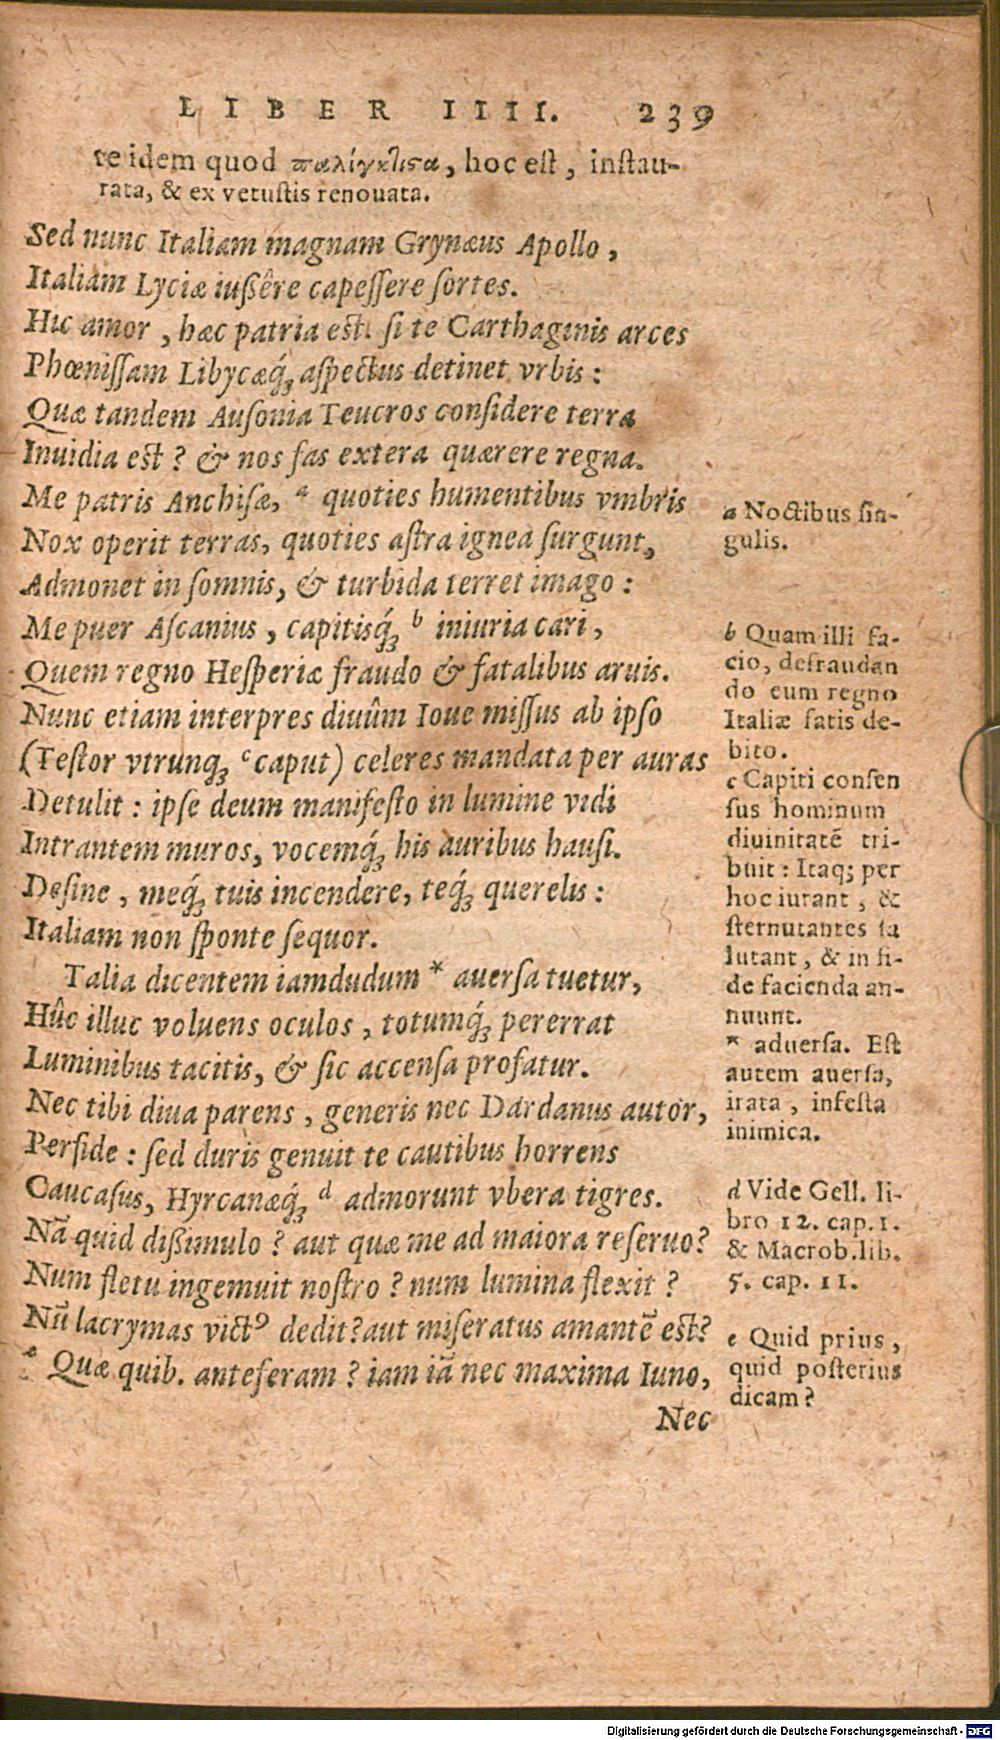 LIBER IIII. 239
te idem quod παλίγκλιτα, hoc est, instau-
rata, & ex vetustis renouata.
Sed nunc Italiam magnam Grynæus Apollo,
Italiam Lyciæ iußêre capeſſere ſortes.
Hic amor, hæc patria est. ſi te Carthaginis arces
Phœniſſam Libycæq́ꝫ aſpectus detinet vrbis:
Quæ tandem Auſonia Teucros conſidere terra
Inuidia est? & nos fas extera quærere regna.
Me patris Anchiſæ, a quoties humentibus vmbris
Nox operit terras, quoties aſtra ignea ſurgunt,
Admonet in ſomnis, & turbida terret imago:
Me puer Aſcanius, capitisq́ꝫ b iniuria cari,
Quem regno Heſperiæ fraudo & fatalibus aruis.
Nunc etiam interpres diuûm Ioue miſſus ab ipſo
(Teſtor vtrunqꝫ c caput) celeres mandata per auras
Detulit: ipſe deum manifeſto in lumine vidi
Intrantem muros, vocemq́ꝫ his auribus hauſi.
Deſine, meq́ꝫ tuis incendere, teq́ꝫ querelis:
Italiam non ſponte ſequor.
Talia dicentem iamdudum * auerſa tuetur,
Hûc illuc voluens oculos, totumq́ꝫ pererrat
Luminibus tacitis, & ſic accenſa profatur.
Nec tibi diua parens, generis nec Dardanus autor,
Perfide: ſed duris genuit te cautibus horrens
Caucaſus, Hyrcanæq́ꝫ d admorunt vbera tigres.
Nã quid dißimulo? aut quæ me ad maiora reſeruo?
Num fletu ingemuit noſtro? num lumina flexit?
Nũ lacrymas victꝰ dedit? aut miſeratus amantẽ est?
e Quæ quib. anteferam? iam iã nec maxima Iuno,
Nec
a Noctibus ſin-
gulis.
b Quam illi fa-
cio, defraudan
do eum regno
Italiæ fatis de-
bito.
c Capiti conſen
ſus hominum
diuinitatẽ tri-
buit: Itaq; per
hoc iurant, &
ſternutantes ſa
lutant, & in fi-
de facienda an-
nuunt.
* aduerſa. Eſt
autem auerſa,
irata, infeſta
inimica.
d Vide Gell. li-
bro 12. cap. 1.
& Macrob. lib.
5. cap. 11.
e Quid prius,
quid poſterius
dicam?
Digitalisierung gefördert durch die Deutsche Forschungsgemeinschaft - DFG